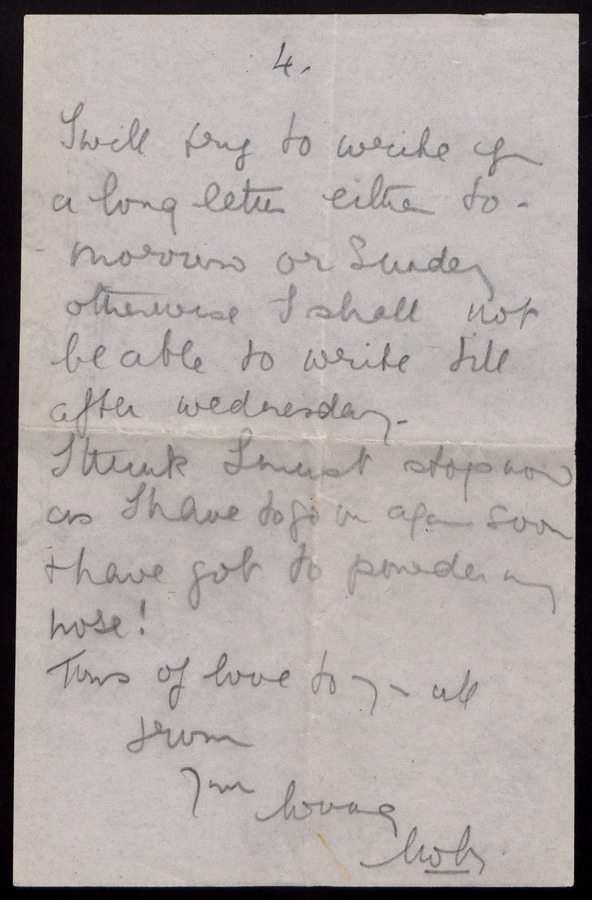 4.
I will try to write you
a long letter either to-
morrow or Sunday
otherwise I shall not
be able to write till
after wednesday.
I think I must stop now
as I have to go on again soon
& have got to powder my
nose!
Tons of love to you all
from
Your loving